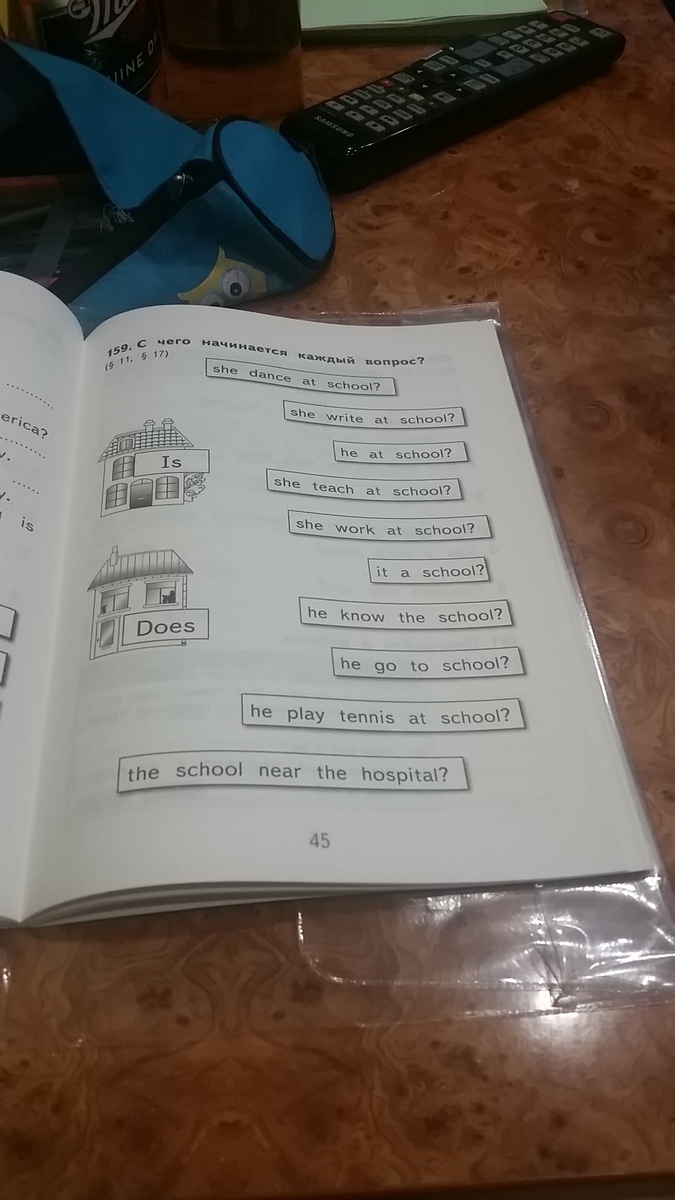 UINE D
SAMSUNG
159. С чего начинается каждый вопрос?
(§ 11, § 17)
she dance at school?
she write at school?
he at school?
Is
she teach at school?
she work at school?
it a school?
he know the school?
Does
he go to school?
he play tennis at school?
the school near the hospital?
45
erica?
is